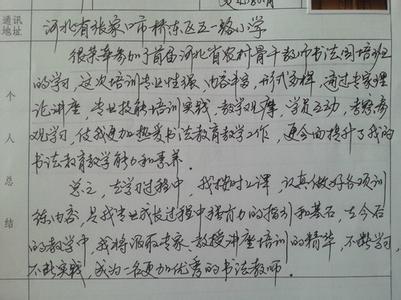 通讯地址 河北省张家口市桥东区五一路小学
个人总结
很荣幸参加了首届河北省农村骨干教师书法国培班
的学习,这次培训专业性强、内容丰富,形式多样,通过专家理
论讲座,专业技能培训实践、教学观摩、学员互动,考察参
观学习,使我更加热爱书法教育教学工作,更全面提升了我的
书法教育教学能力和素养。
总之,在学习过程中,我按时上课,认真做好各项训
练内容,是我专业成长过程中强有力的指引和基石,在今后
的教学中,我将汲取专家、教授讲座培训的精华,不断学习,
不断实践,成为一名更加优秀的书法教师。